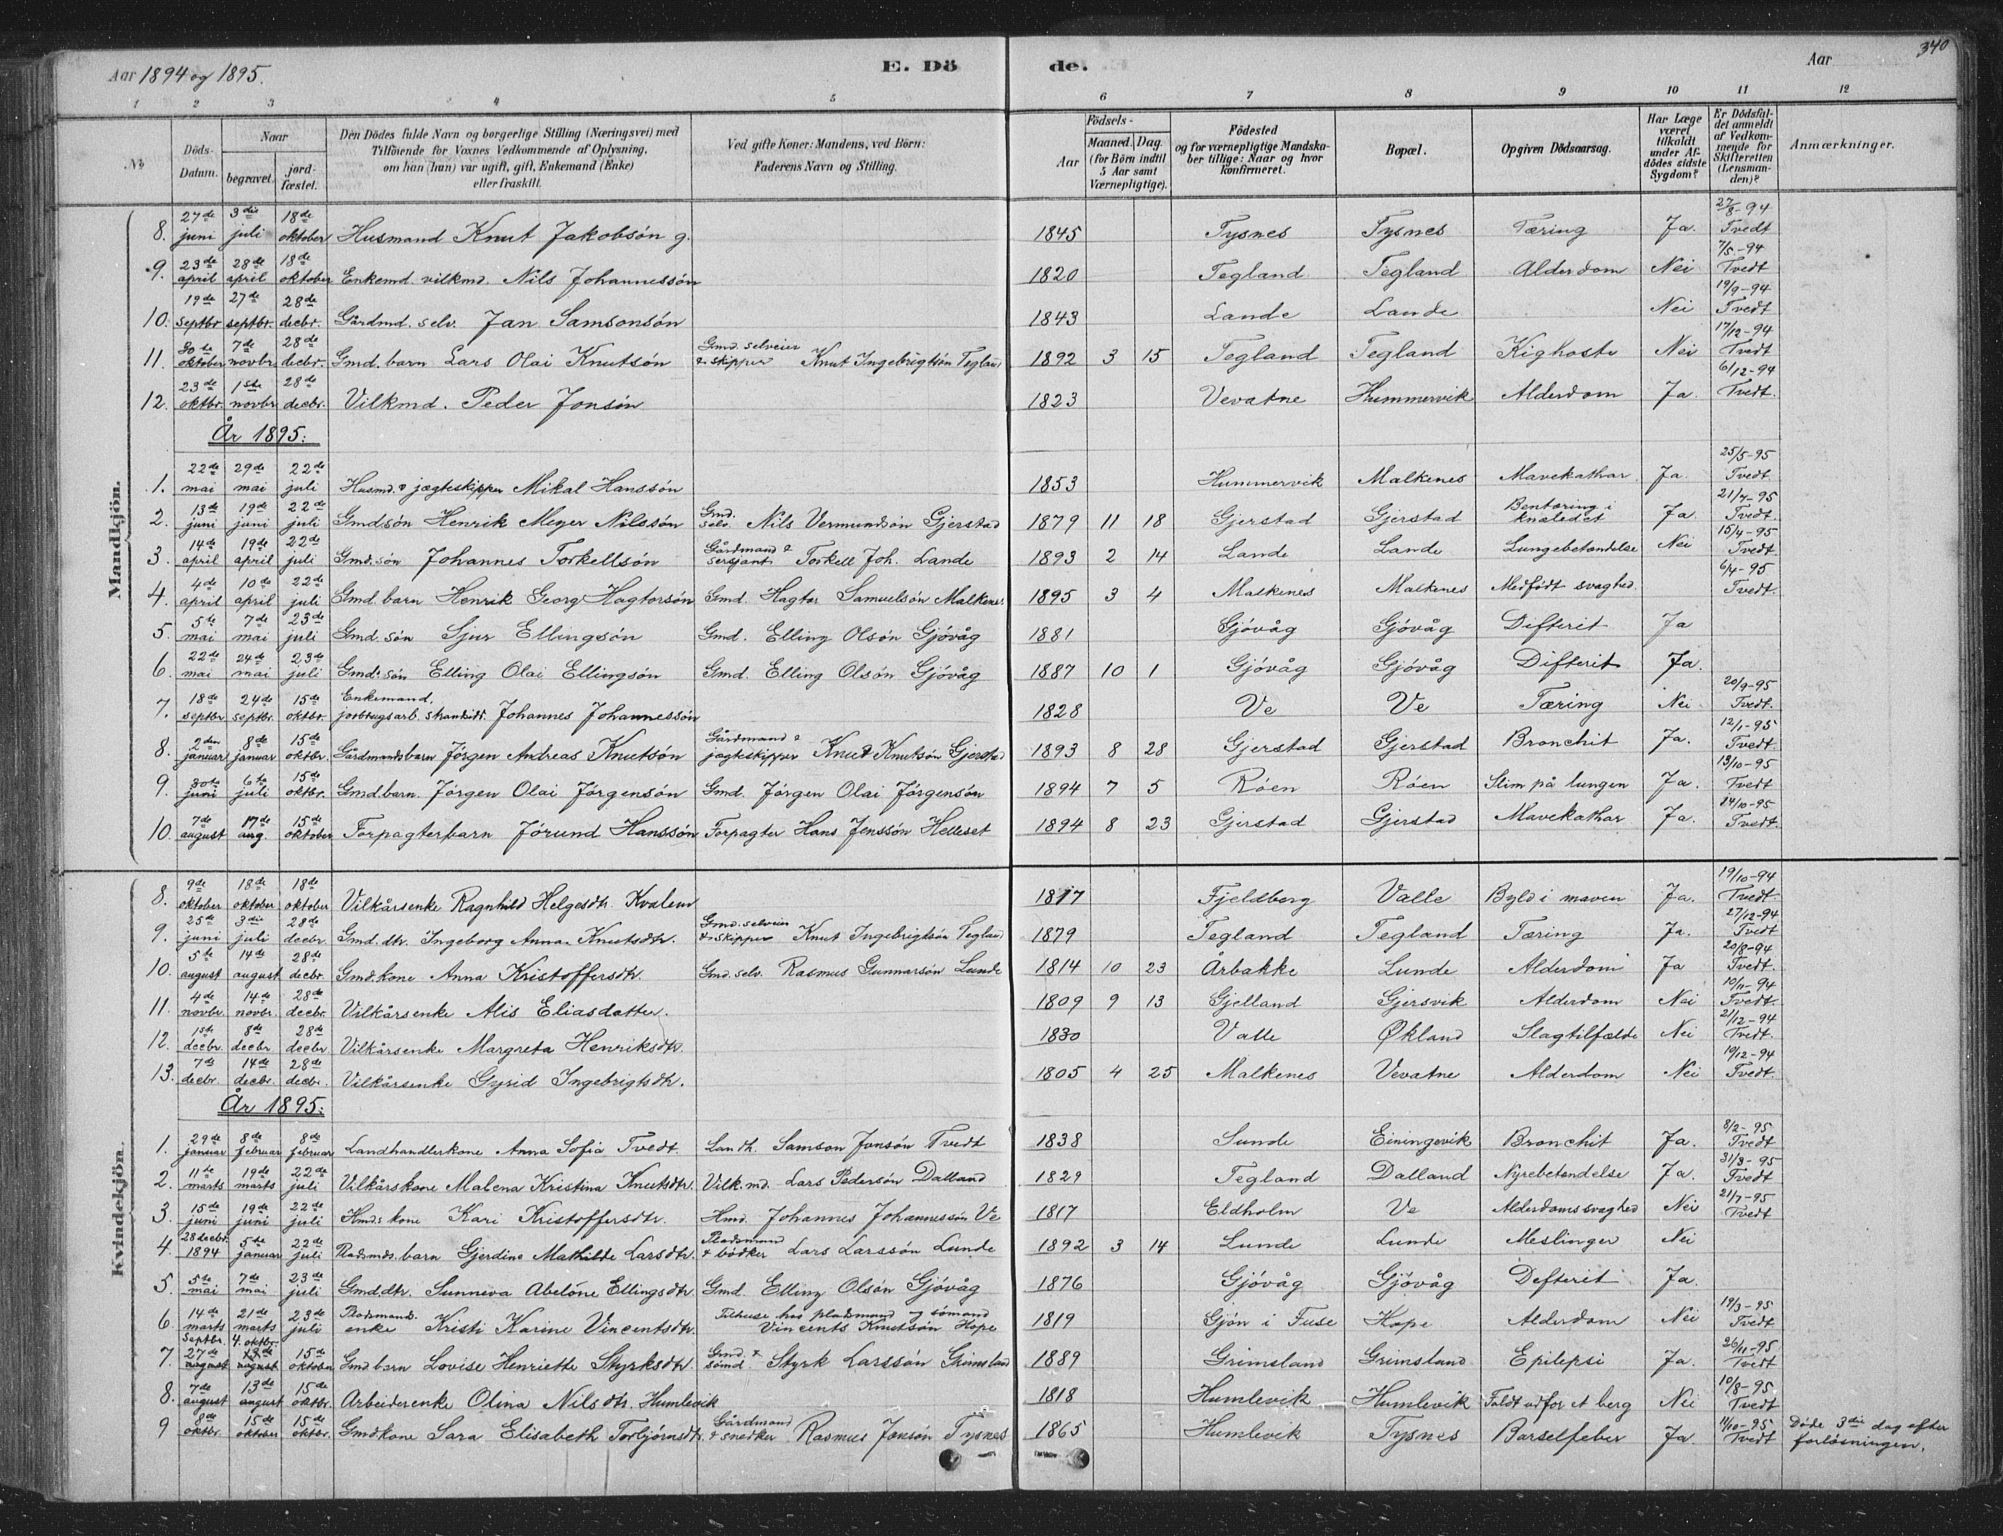 340
Aar 1894 og 1895.
E. Dö de.
Aar
1 2 3 4 5 6 7 8 9 10 11 12
No
Döds-Datum.
Naar begravet. jordfæstet.
Den Dödes fulde Navn og borgerlige Stilling (Næringsvei) med Tilföiende for Voxnes Vedkommende af Oplysning, om han (hun) var ugift, gift, Enkemand (Enke) eller fraskilt.
Ved gifte Koner: Mandens, ved Börn: Faderens Navn og Stilling.
Födsels- Aar Maaned. Dag. (for Börn indtil 5 Aar samt Værnepligtige).
Födested og for værnepligtige Mandskaber tillige: Naar og hvor konfirmeret.
Bopæl.
Opgiven Dödsaarsag.
Har Læge været tilkaldt under Afdödes sidste Sygdom?
Er Dödsfaldet anmeldt af Vedkommende for Skifteretten (Lensmanden)?
Anmærkninger.
Mandkjön.
8. 27de juni 3die juli 18de oktober Husmand Knut Jakobsön g. 1845 Tysnes Tysnes Tæring Ja. 27/8-94 Tvedt
9. 23de april 28de april 18de oktober Enkemd. vilkmd. Nils Johannessön 1820 Tegland Tegland Alderdom Nei 7/5-94 Tvedt
10. 19de septbr. 27de septbr. 28de decbr. Gårdmd. selv. Jan Samsonsön 1843 Lande Lande Nei 19/9-94 Tvedt
11. 30te oktober 7de novbr 28de decbr. Gmd. barn Lars Olai Knutsön Gmd. selveier & skipper Knut Ingebrigtsön Tegland 1892 3 15 Tegland Tegland Kighoste Nei 17/12-94 Tvedt
12. 23de oktbr. 1ste novbr 28de decbr. Vilkmd. Peder Jonsön 1823 Vevatne Hummervik Alderdom Ja. 6/12-94 Tvedt.
År 1895:
1. 22de mai 29de mai 22de juli Husmd. & jægteskipper Mikal Hanssön 1853 Hummervik Malkenes Mavekathar Ja. 25/5-95 Tvedt.
2. 13de juni 19de juni 22de juli Gmdsön Henrik Meyer Nilssön Gmd. selv. Nils Vermundsön Gjerstad 1879 11 18 Gjerstad Gjerstad Bentæring i knæledet Ja. 21/7-95 Tvedt.
3. 14de april 19de april 22de juli Gmd. sön Johannes Torkellsön Gårdmand & sersjant Torkell Joh. Lande 1893 2 14 Lande Lande Lungebetændelse Nei 15/4-95 Tvedt.
4. 4de april 10de april 22de juli Gmd. barn Henrik Georg Hagtorsön Gmd. Hagtor Samuelsön Malkenes. 1895 3 4 Malkenes Malkenes Medfödt svaghed. 6/4-95 Tvedt.
5. 5te mai 7de mai 23de juli Gmd. sön Sjur Ellingsön Gmd. Elling Olsön Gjövåg 1881 Gjövåg Gjövåg Difterit Ja
6. 22de mai 24de mai 23de juli Gmd. sön Elling Olai Ellingsön Gmd. Elling Olsön Gjövåg 1887 10 1 Gjövåg Gjövåg Difterit Ja.
7. 18de septbr 24de septbr. 15de oktbr. Enkemand, jorbrugsarb. strandsidr. Johannes Johannessön 1828 Ve Ve Tæring Nei 20/9-95 Tvedt.
8. 2den januar 8de januar 15de oktbr. Gårdmandsbarn Jörgen Andreas Knutsön Gårdmand & jægteskipper Knut Knutsön Gjerstad 1893 8 28 Gjerstad Gjerstad Bronchit Ja. 12/1-95 Tvedt.
9. 30te juni 6te juli 15de oktbr. Gmd. barn Jörgen Olai Jörgensön Gmd. Jörgen Olai Jörgensön 1894 7 5 Röen Röen Slim på lungen Ja. 13/10-95 Tvedt
10. 7de august 17de aug. 15de oktober Forpagterbarn Jörund Hanssön Forpagter Hans Jenssön Helleset 1894 8 23 Gjerstad Gjerstad Mavekathar Ja. 14/10-95 Tvedt.
Kvindekjön.
8. 9de oktober 18de oktober 18de oktober Vilkårsenke Ragnhild Helgesdtr. Kvalem 1817 Fjeldberg Valle Byld i maven Ja. 19/10-94 Tvedt.
9. 25de juni 3die juli 28de decbr Gmd. dtr. Ingeborg Anna Knutsdtr. Gmd. selveier & skipper Knut Ingebrigtsön Tegland 1879 Tegland Tegland Tæring Ja. 27/12-94 Tvedt
10. 5te august 14de august 28de decbr. Gmdkone Anna Kristoffersdtr. Gmd. selv. Rasmus Gunnarsön Lunde 1814 10 23 Årbakke Lunde Alderdom Ja 20/8-94 Tvedt.
11. 4de novbr. 14de novbr. 28de decbr. Vilkårsenke Alis Eliasdatter. 1809 9 13 Gjelland Gjersvik Alderdom Nei 10/11-94 Tvedt.
12. 1ste decbr. 8de decbr. 28de decbr Vilkårsenke Margreta Henriksdtr. 1830 Valle Økland Slagtilfælde Nei 21/12-94 Tvedt.
13. 7de decbr. 14de decbr. 28de decbr. Vilkårsenke Gyrid Ingebrigtsdtr. 1805 4 25 Malkenes Vevatne Alderdom Nei 19/12-94 Tvedt.
År 1895:
1. 29de januar 8de februar 8de februar Landhandlerkone Anna Sofia Tvedt. Landh. Samson Jonsön Tvedt 1838 Sunde Einingevik Bronchit Ja. 8/2-95 Tvedt
2. 11te marts 19de marts 22de juli Vilkårskone Malena Kristina Knutsdtr. Vilk. md. Lars Pedersön Dalland 1829 Tegland Dalland Nyrebetendelse Ja. 31/3-95 Tvedt
3. 15de juni 19de juni 22de juli Hmds kone Kari Kristoffersdtr. Hmd. Johannes Johannessön Ve 1817 Eldholm Ve Alderdomssvaghed Nei 21/7-95 Tvedt
4. 28 decbr. 1894 5te januar 22de juli Pladsmds. barn Gjerdine Mathilde Larsdtr. Pladsmand & bödker Lars Larssön Lunde 1892 3 14 Lunde Lunde Meslinger Nei
5. 5te mai 7de mai 23de juli Gmd dtr. Sunneva Abelöne Ellingsdtr Gmd. Elling Olsön Gjövåg 1876 Gjövåg Gjövåg Defterit Ja.
6. 14de marts 21de marts 23de juli Pladsmand. enke Kristi Karine Vincentsdtr. Tilhuse hos pladsmand og sömand Vincents Knutsön Hope 1819 Gjön i Fuse Hope Alderdom Nei 19/3-95 Tvedt
7. Septbr 27de august 4. oktbr. august 15de oktober Gmd barn Lovise Henriette Styrksdtr. Gmd. & sömd Styrk Larssön Grimsland 1889 Grimsland Grimsland Epilepsi Ja. 26/11-95 Tvedt
8. 7de august 13de august 15de oktbr. Arbeiderenke Olina Nilsdtr. Humlevik 1818 Humlevik Humlevik Faldt udfor et berg Nei 10/8-95 Tvedt
9 8de oktbr. 15de oktober 15de oktober Gmdkone Sara Elisabeth Torbjörnsdtr. Gårdmand & snedker Rasmus Jonsön Tysnes 1865 Humlevik Tysnes Barselfeber Ja. 11/10-95 Tvedt Döde 3die dag efter forlösningen.